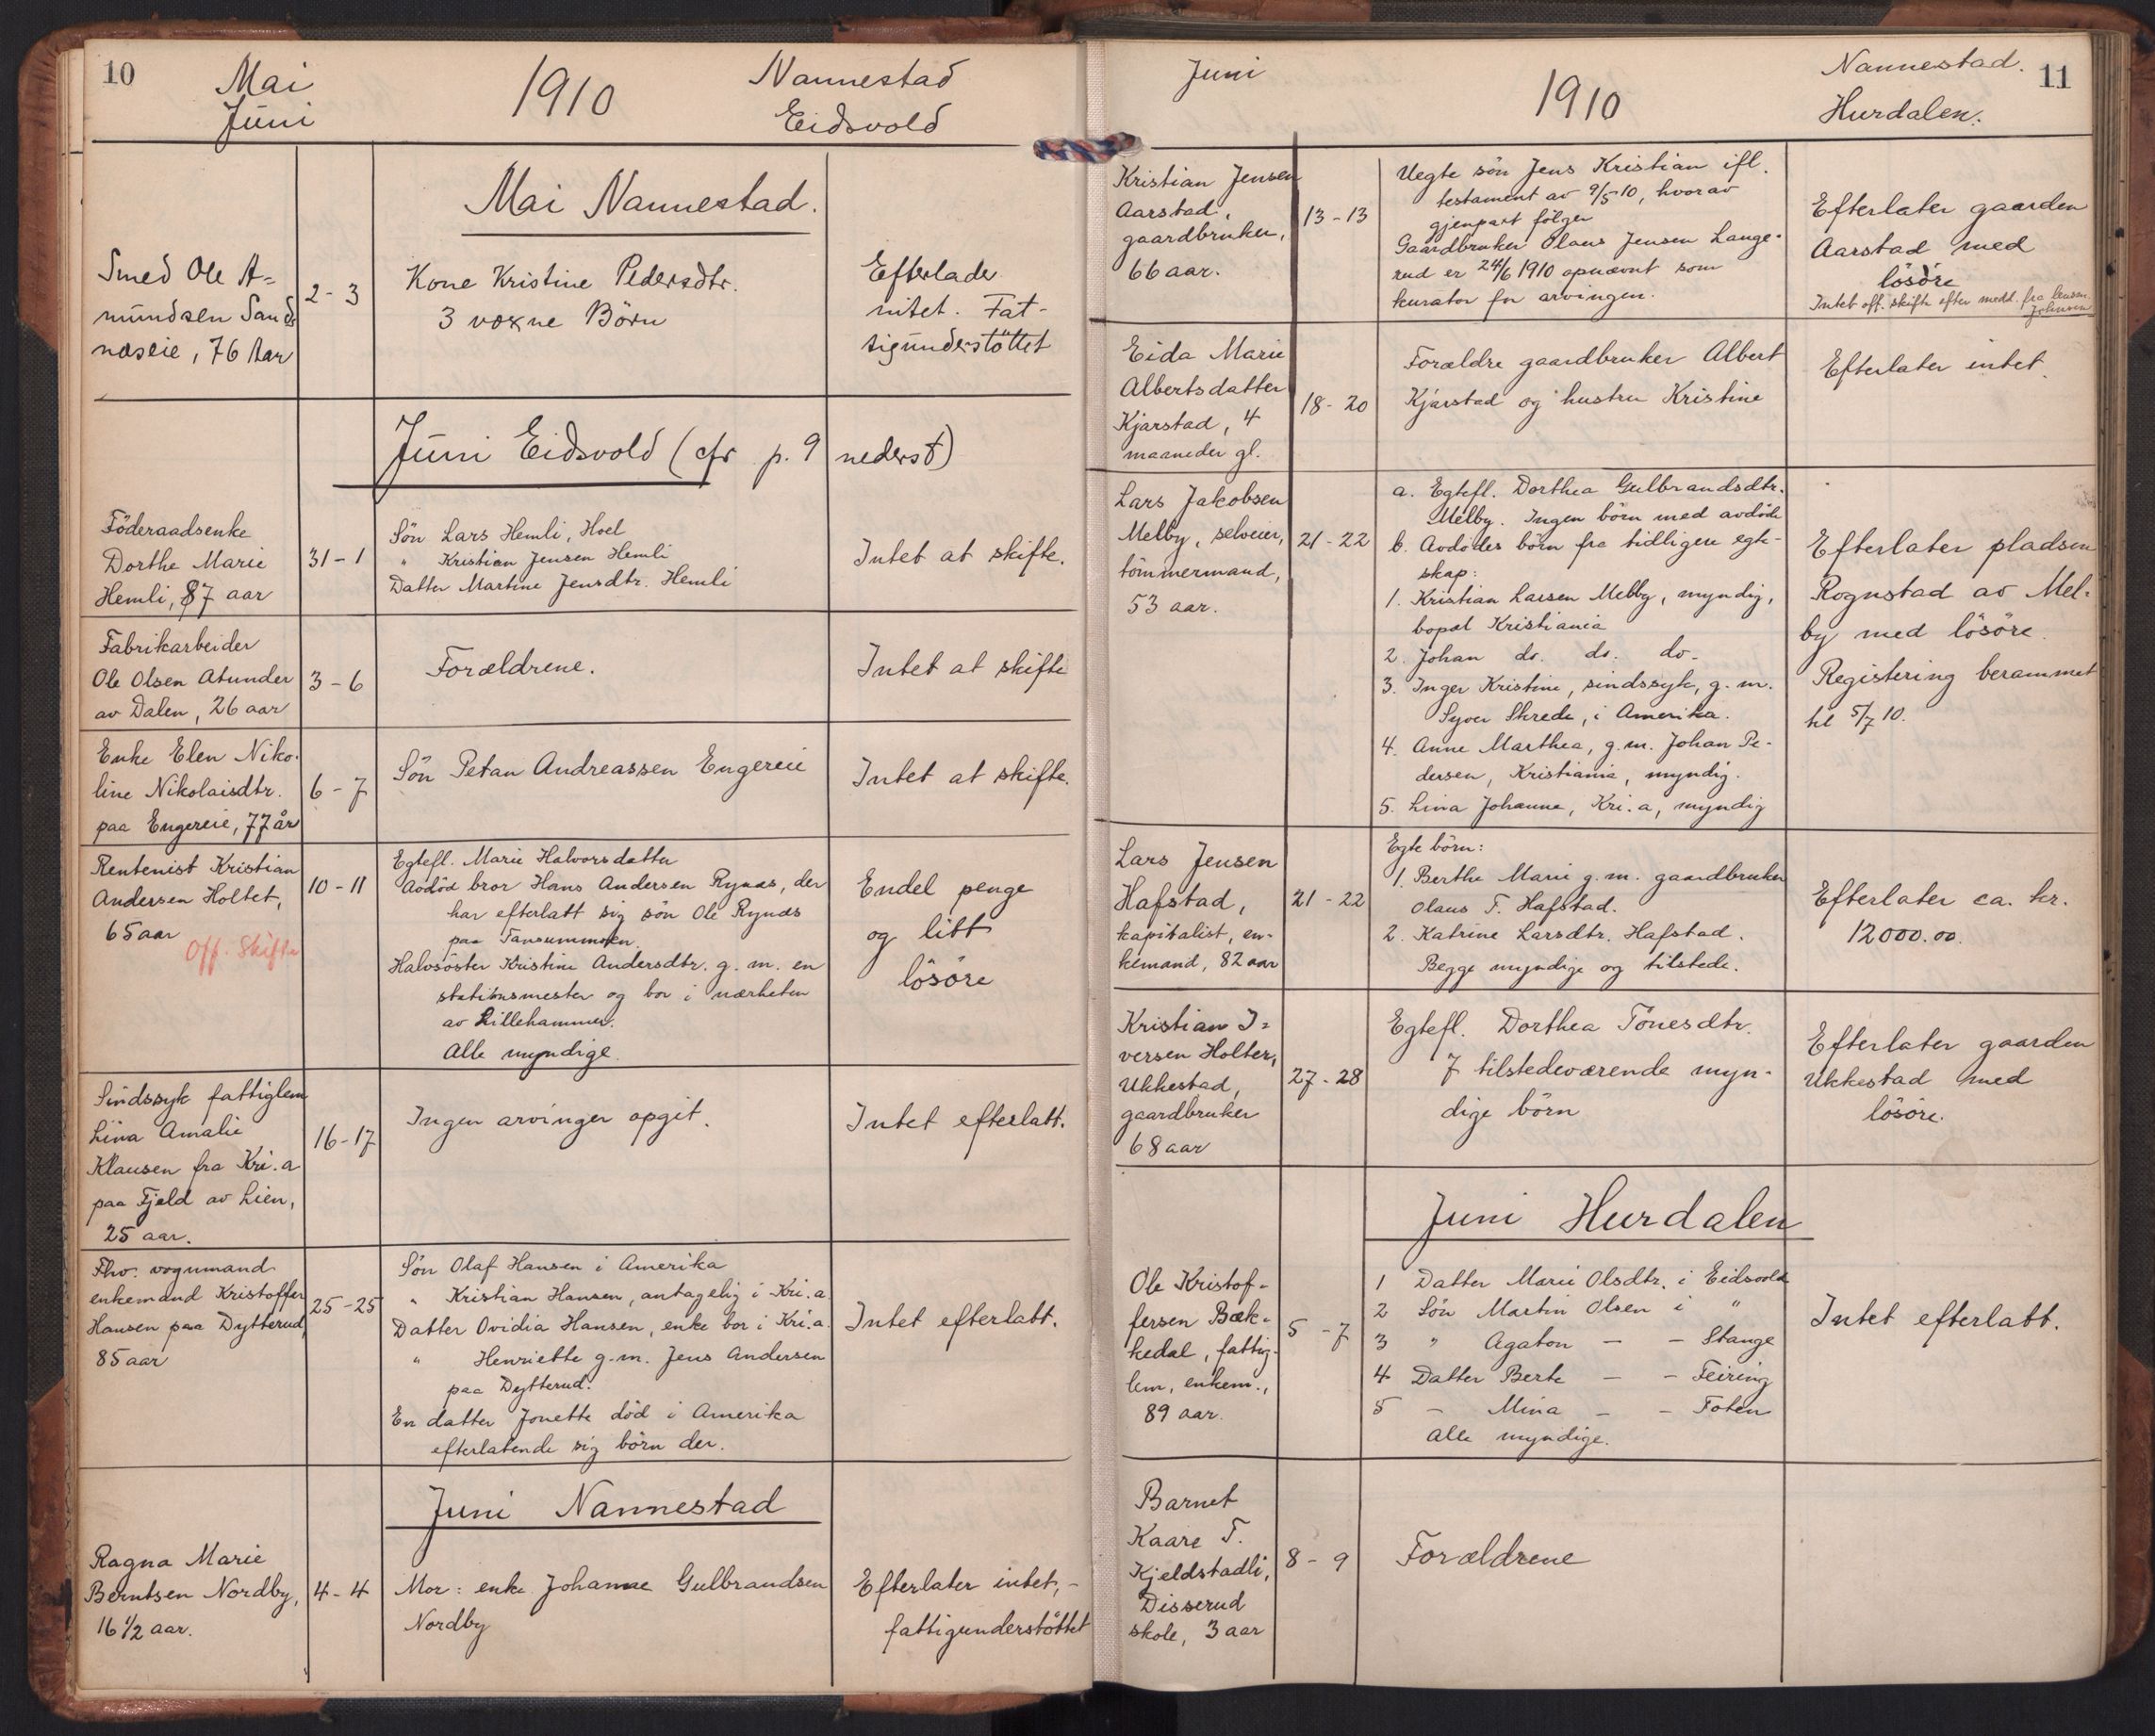 10
Mai
Juni
1910
Nannestad
Eidsvold
Mai Nannestad.
Smed Ole A=
mundsen Sand
næseie, 76 Aar
2-3
Kone Kristine Pedersdtr.
3 voxne Börn
Efterlader
intet. Fat-
tigunderstöttet
Juni Eidsvold (cfr p. 9 nederst)
Föderaadsenke
Dorthe Marie
Hemli, 87 aar
31-1
Sön Lars Hemli, Hoel
" Kristian Jensen Hemli
Datter Martine Jensdtr. Hemli
Intet at skifte.
Fabrikarbeider
Ole Olsen Atunder
av Dalen, 26 aar
3-6
Forældrene.
Intet at skifte
Enke Elen Niko-
line Nikolaisdtr.
paa Engereie, 77 år
6-7
Sön Petan Andreassen Engereie
Intet at skifte.
Rentenist Kristian
Andersen Holtet,
65 aar
Off. Skifte
10-11
Egtefl. Marie Halvorsdatter
Avdöd bror Hans Andersen Rynås, der
har efterlatt sig sön Ole Rynås
paa
Halvsöster Kristine Andersdtr. g. m. en
stationsmester og bor i nærheten
av Lillehammer.
Alle myndige.
Endel penge
og litt
lösöre
Sindssyk fattiglem
Lina Amalie
Klausen fra Kri.a
paa Fjeld av Lien,
25 aar.
16-17
Ingen arvinger opgit.
Intet efterlatt.
Fhv. vognmand
enkemand Kristoffer
Hansen paa Dytterud,
85 aar
25-25
Sön Olaf Hansen i Amerika
" Kristian Hansen, antagelig i Kri.a
Datter Ovidia Hansen, enke bor i Kri.a.
" Henriette g.m. Jens Andersen
paa Dytterud.
En datter Jonette död i Amerika
efterlatende sig börn der.
Intet efterlatt.
Juni Nannestad
Ragna Marie
Berntsen Nordby,
16 1/2 aar.
4-4
Mor: enke Johanne Gulbrandsen
Nordby
Efterlater intet, -
fattigunderstöttet
Juni
1910
Nannestad.
Hurdalen.
11
Kristian Jensen
Aarstad,
gaardbruker,
66 aar.
13-13
Uegte sön Jens Kristian ifl.
testament av 9/5-10, hvorav
gjenpart fölger
Gaardbruker Olaus Jensen Lange-
rud er 24/6 1910 opnævnt som
kurator for arvingen.
Efterlater gaarden
Aarstad med
lösöre
Intet off. skifte efter medd. fra lensm.
Johnsen
Eida Marie
Albertsdatter
Kjarstad, 4
maaneder gl.
18-20
Forældre gaardbruker Albert
Kjarstad og hustru Kristine
Efterlater intet.
Lars Jakobsen
Melby, selveier,
tömmermand,
53 aar.
21-22
a. Egtefl. Dorthea Gulbrandsdtr.
Melby. Ingen börn med avdöde
b. Avdödes börn fra tidligere egte-
skap:
1. Kristian Larsen Melby, myndig,
bopæl Kristiania
2. Johan do. do. do-
3. Inger Kristine, sindssyk, g. m.
Syver Skrede, i Amerika.
4. Anne Marthea, g.m. Johan Pe-
dersen, Kristiania, myndig.
5. Lina Johanne, Kri.a, myndig
Efterlater pladsen
Rognstad av Mel-
by med lösöre.
Registering berammet
til 5/7 10.
Lars Jensen
Hafstad,
kapitalist, en-
kemand, 82 aar
21-22
Egte börn:
1. Berthe Marie g. m. gaardbruker
Olaus T. Hafstad.
2. Katrine Larsdtr. Hafstad.
Begge myndige og tilstede.
Efterlater ca. kr.
12000.00.
Kristian I=
versen Holter,
Ukkestad,
gaardbruker
68 aar
27-28
Egtefl. Dorthea Tönesdtr.
7 tilstedeværende myn-
dige börn
Efterlater gaarden
Ukkestad med
lösöre.
Juni Hurdalen
Ole Kristof-
fersen Bæk-
kedal, fattig-
lem, enkem.,
89 aar.
5-7
1 Datter Marie Olsdtr. i Eidsvold
2 Sön Martin Olsen i "
3 " Agaton - - Stange
4 Datter Berte - - Feiring
5 - Mina - - Toten
Alle myndige.
Intet efterlatt.
Barnet
Kaare T.
Kjeldstadli,
Disserud
skole, 3 aar
8-9
Forældrene